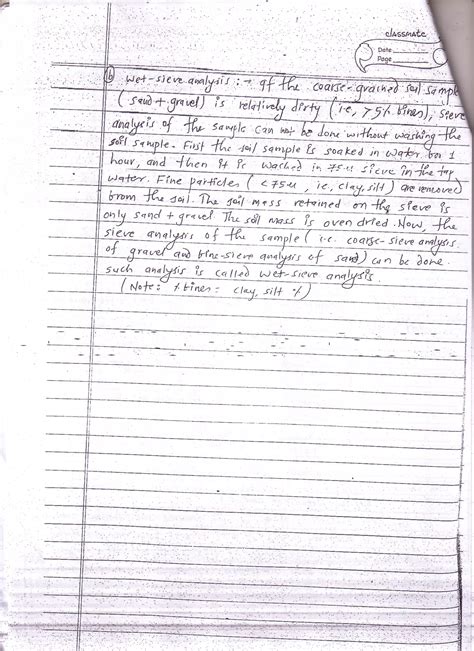 classmate
Date
Page
(b) Wet-sieve analysis :→ If the coarse-grained soil sample
(sand + gravel) is relatively dirty (i.e, >5% fines), sieve
analysis of the sample can not be done without washing the
soil sample. First the soil sample is soaked in water for 1
hour, and then it is washed in 75μ sieve in the tap
water. Fine particles (<75μ, ie, clay, silt) are removed
from the soil. The soil mass retained on the sieve is
only sand + gravel The soil mass is oven dried. Now, the
sieve analysis of the sample (i.e. coarse-sieve analysis
of gravel and fine-sieve analysis of sand) can be done.
such analysis is called wet-sieve analysis.
(Note: % fines = clay, silt %)